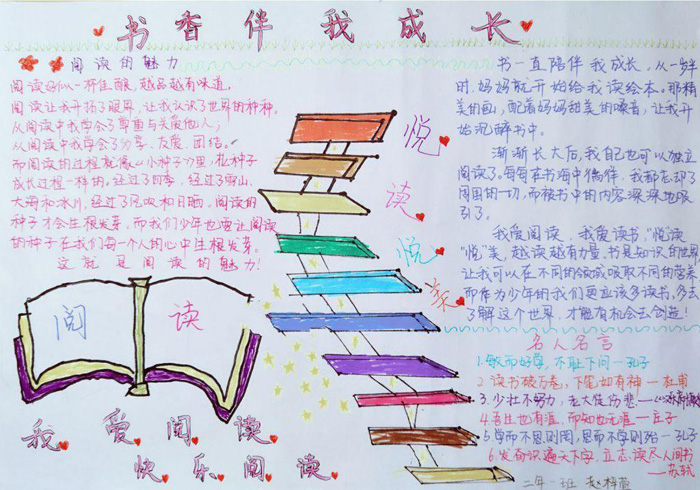 书香伴我成长
阅读的魅力
阅读好似一杯佳酿，越品越有味道。
阅读让我开拓了眼界，让我认识了世界的种种。
从阅读中我学会了尊重与关爱他人，
从阅读中我学会了分享、友爱、团结。
而阅读的过程就像《小种子》里，粒种子
成长过程一样的。经过了四季，经过了雪山、
大海和冰川，经过了风吹和日晒，阅读的
种子才会生根发芽。而我们少年也要让阅读
的种子在我们每一个人的心中生根发芽。
这就是阅读的魅力！
阅读
我爱阅读
快乐阅读
悦
读
悦
美
书一直陪伴我成长，从一岁半
时，妈妈就开始给我读绘本。那精
美的画，配着妈妈甜美的嗓音，让我开
始沉醉书中。
渐渐长大后，我自己也可以独立
阅读了。每每在书海中徜徉，我都忘却了
周围的一切，而被书中的内容深深地吸
引了。
我爱阅读，我爱读书，“悦读
“悦”美，越读越有力量。书是知识的世界
让我可以在不同的领域吸取不同的营养
而作为少年的我们更应该多读书，多去
了解这个世界，才能有机会去创造！
名人名言
1.敏而好学，不耻下问—孔子
2.读书破万卷，下笔如有神—杜甫
3.少壮不努力，老大徒伤悲—
4.吾生也有涯，而知也无涯—庄子
5.学而不思则罔，思而不学则殆—孔子
6.发奋识遍天下字，立志读尽人间书
—苏轼
二年一班 赵梓萱